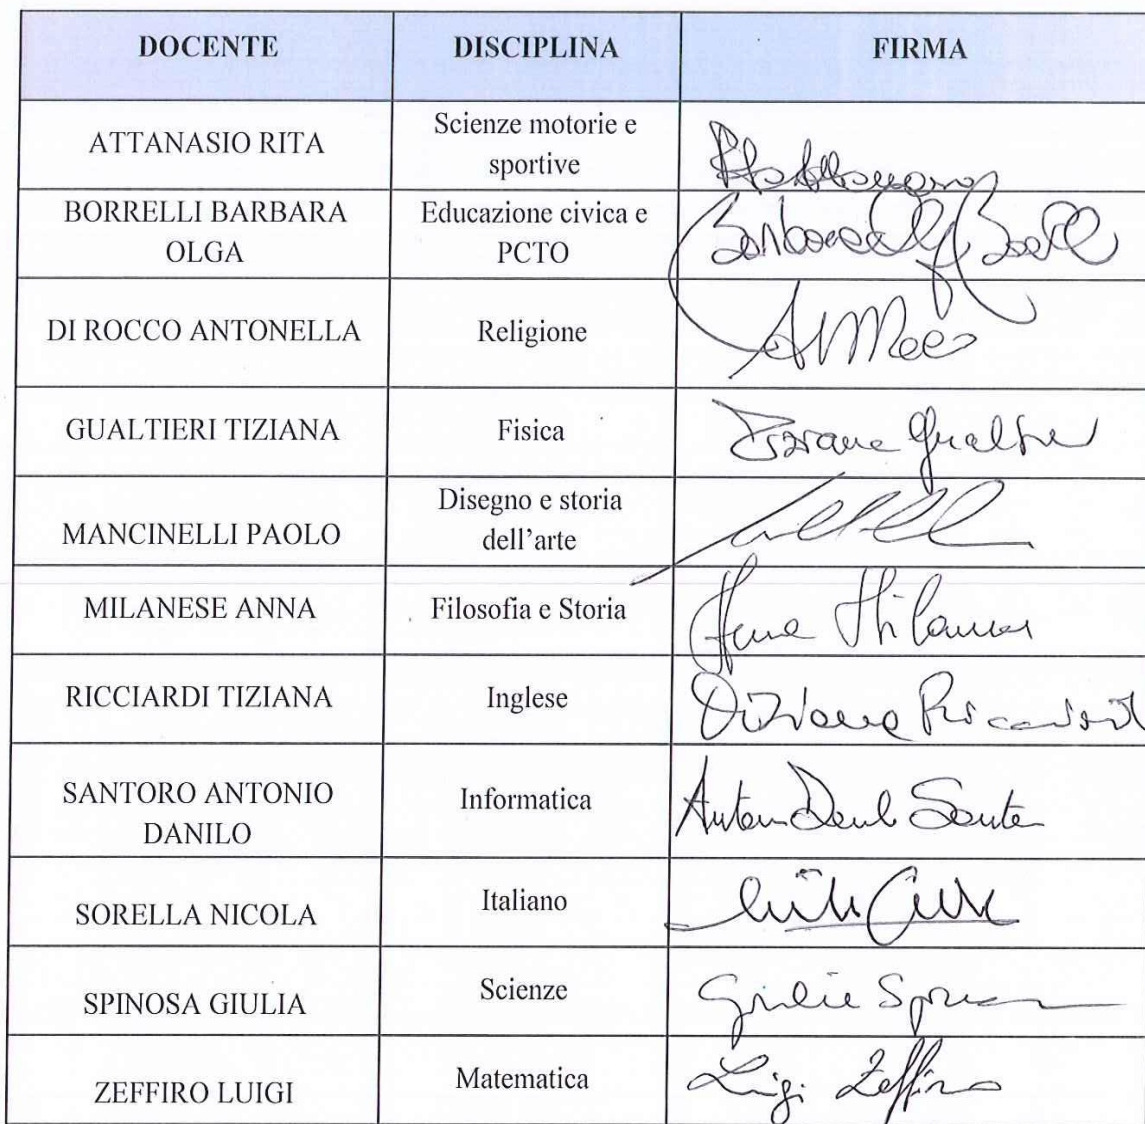 DOCENTE DISCIPLINA FIRMA
ATTANASIO RITA Scienze motorie e
sportive
BORRELLI BARBARA Educazione civica e
OLGA PCTO
DI ROCCO ANTONELLA Religione
GUALTIERI TIZIANA Fisica Tiziana Gualtieri
Disegno e storia
MANCINELLI PAOLO dell'arte
MILANESE ANNA Filosofia e Storia Anna Milanese
RICCIARDI TIZIANA Inglese Tiziana Ricciardi
SANTORO ANTONIO Informatica
DANILO
SORELLA NICOLA Italiano
SPINOSA GIULIA Scienze Giulia
ZEFFIRO LUIGI Matematica Luigi Zeffiro